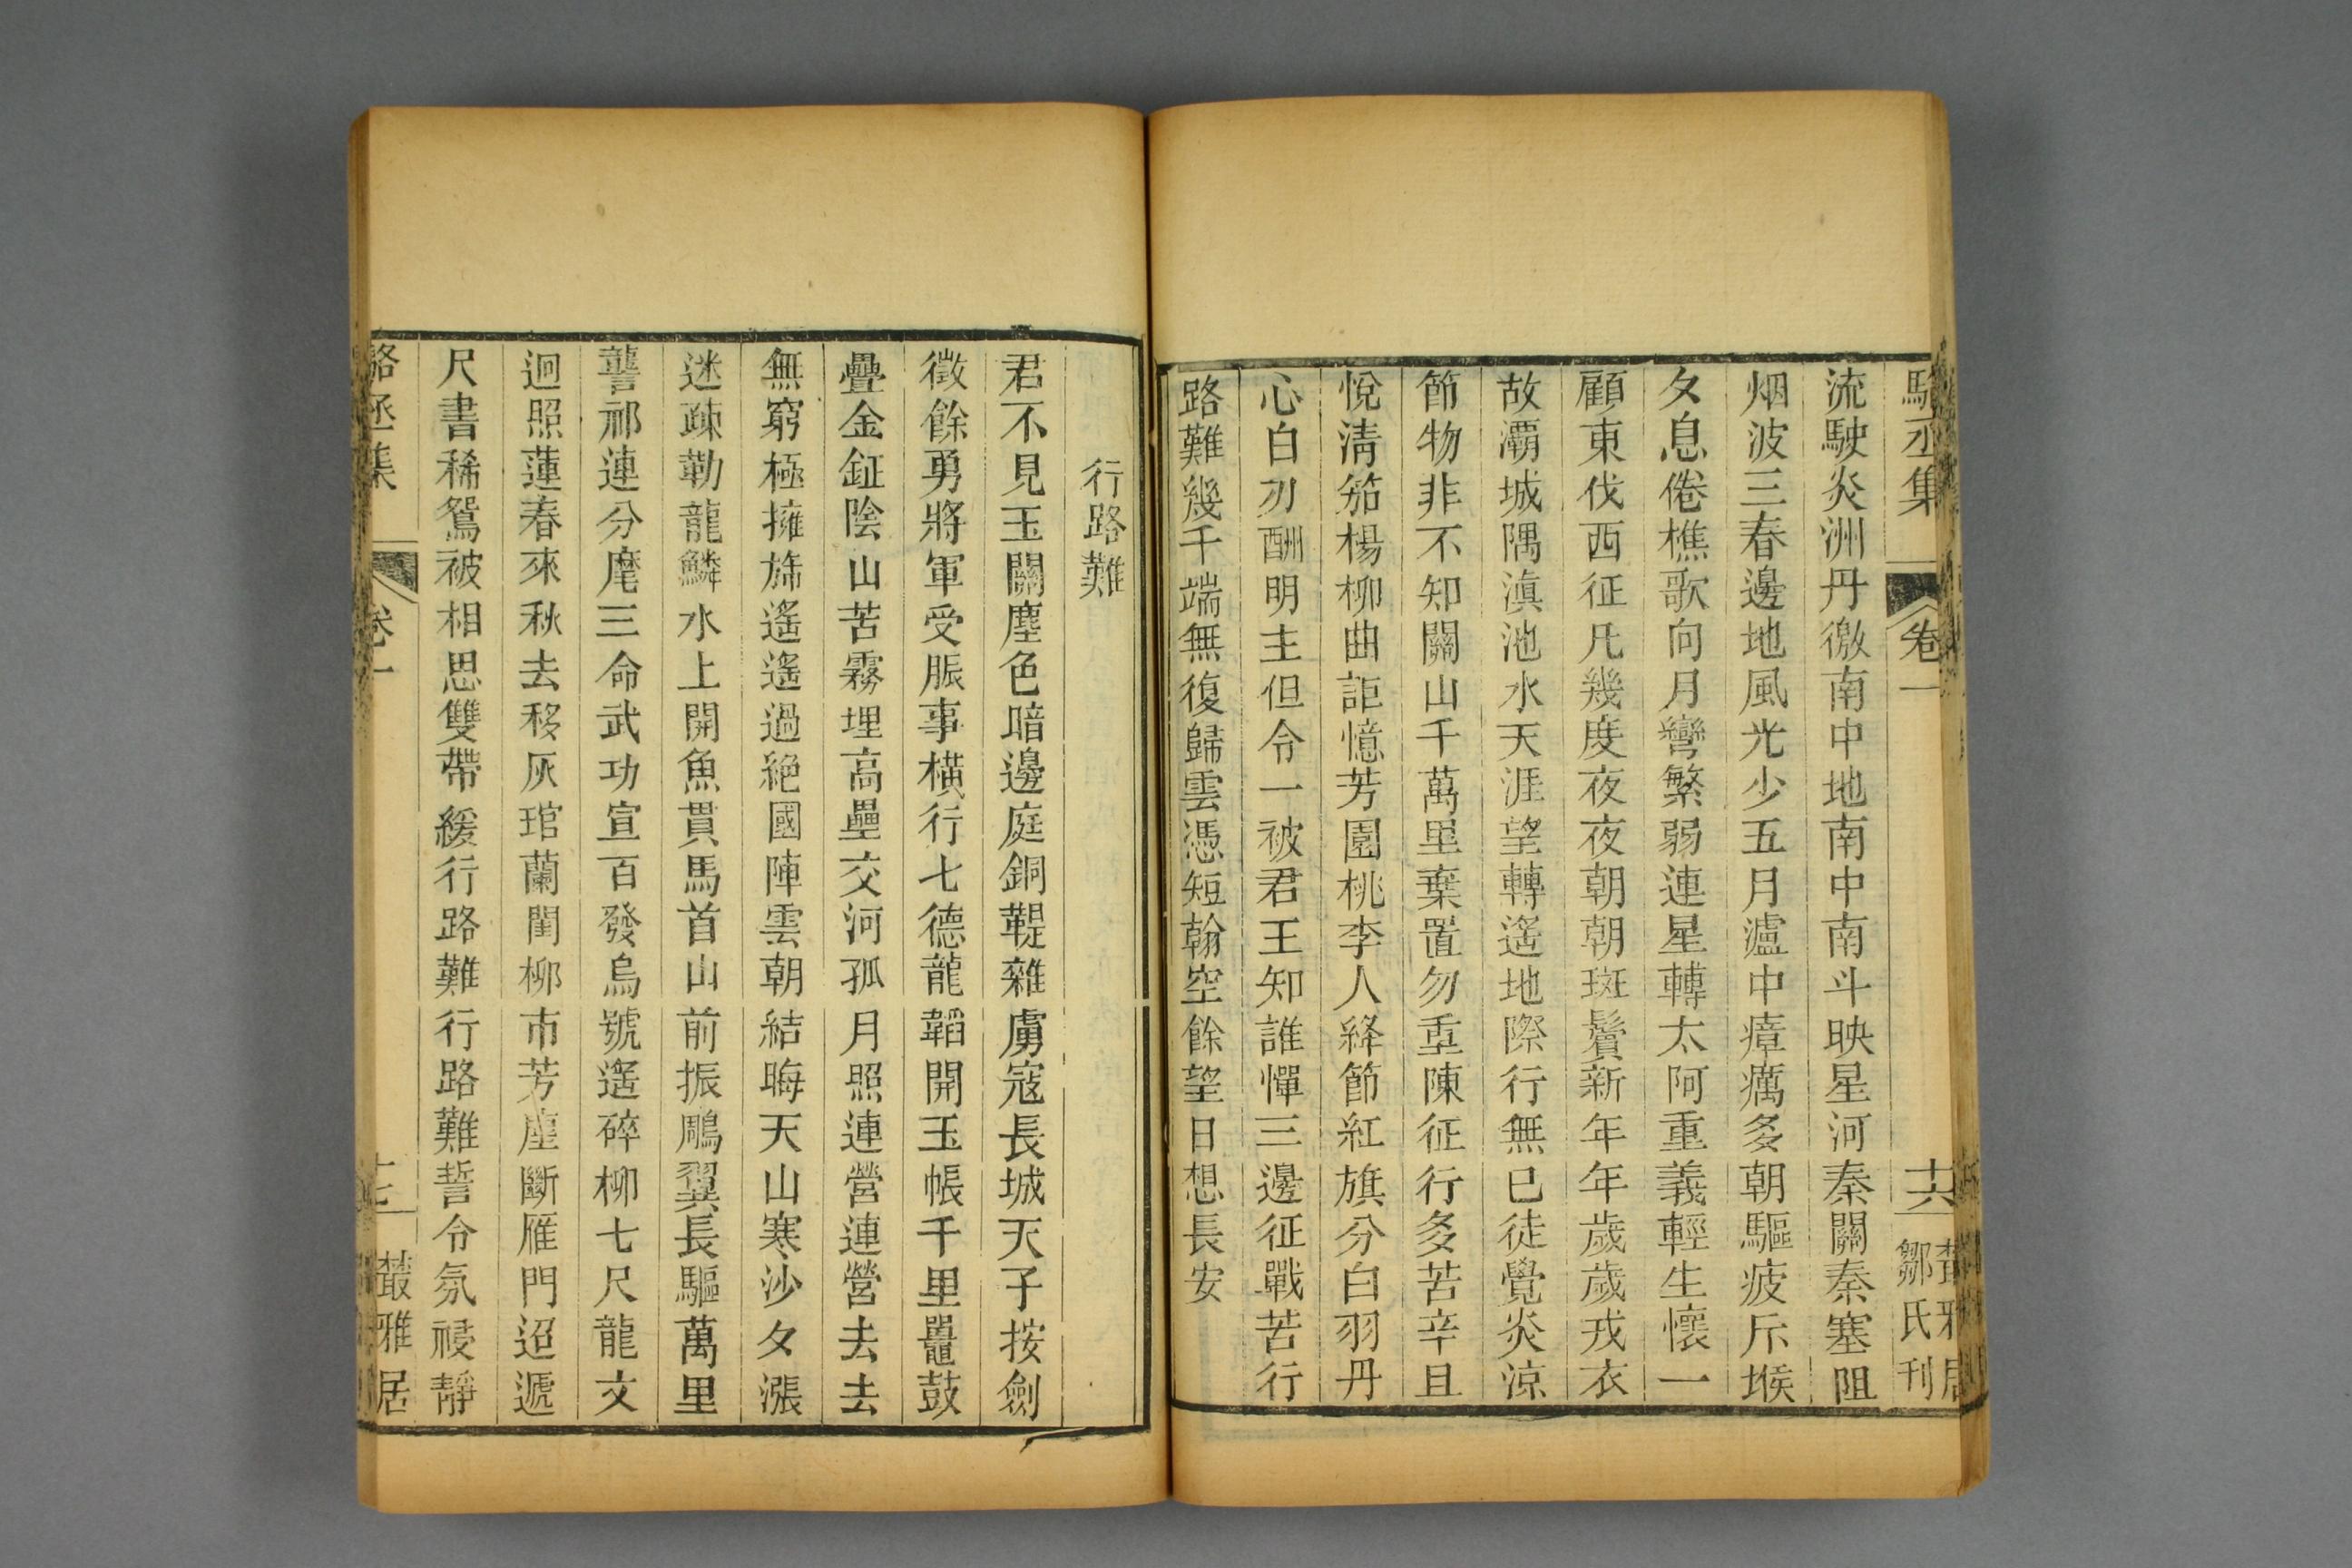 駱丞集 卷一 十六 叢雅居 鄒氏刊
流駛炎洲丹徼南中地南中南斗映星河秦關秦塞阻
烟波三春邊地風光少五月瀘中瘴癘多朝驅疲斥堠
夕息倦樵歌向月彎繁弱連星轉太阿重義輕生懷一
顧東伐西征凡幾度夜夜朝朝斑鬢新年年歲歲戎衣
故灞城隅滇池水天涯望轉遙地際行無已徒覺炎涼
節物非不知關山千萬里棄置勿重陳征行多苦辛且
悅清笳楊柳曲詎憶芳園桃李人絳節紅旗分白羽丹
心白刃酬明主但令一被君王知誰憚三邊征戰苦行
路難幾千端無復歸雲憑短翰空餘望日想長安
行路難
君不見玉關塵色暗邊庭銅鞮雜虜寇長城天子按劍
徵餘勇將軍受脤事橫行七德龍韜開玉帳千里鼉鼓
疊金鉦陰山苦霧埋高壘交河孤月照連營連營去去
無窮極擁旆遙遙過絕國陣雲朝結晦天山寒沙夕漲
迷疎勒龍鱗水上開魚貫馬首山前振鵰翼長驅萬里
讋祁連分麾三命武功宣百發烏號遙碎柳七尺龍文
迴照蓮春來秋去移灰琯蘭閨柳市芳塵斷雁門迢遞
尺書稀鴛被相思雙帶緩行路難行路難誓令氛祲靜
駱丞集 卷一 十七 叢雅居